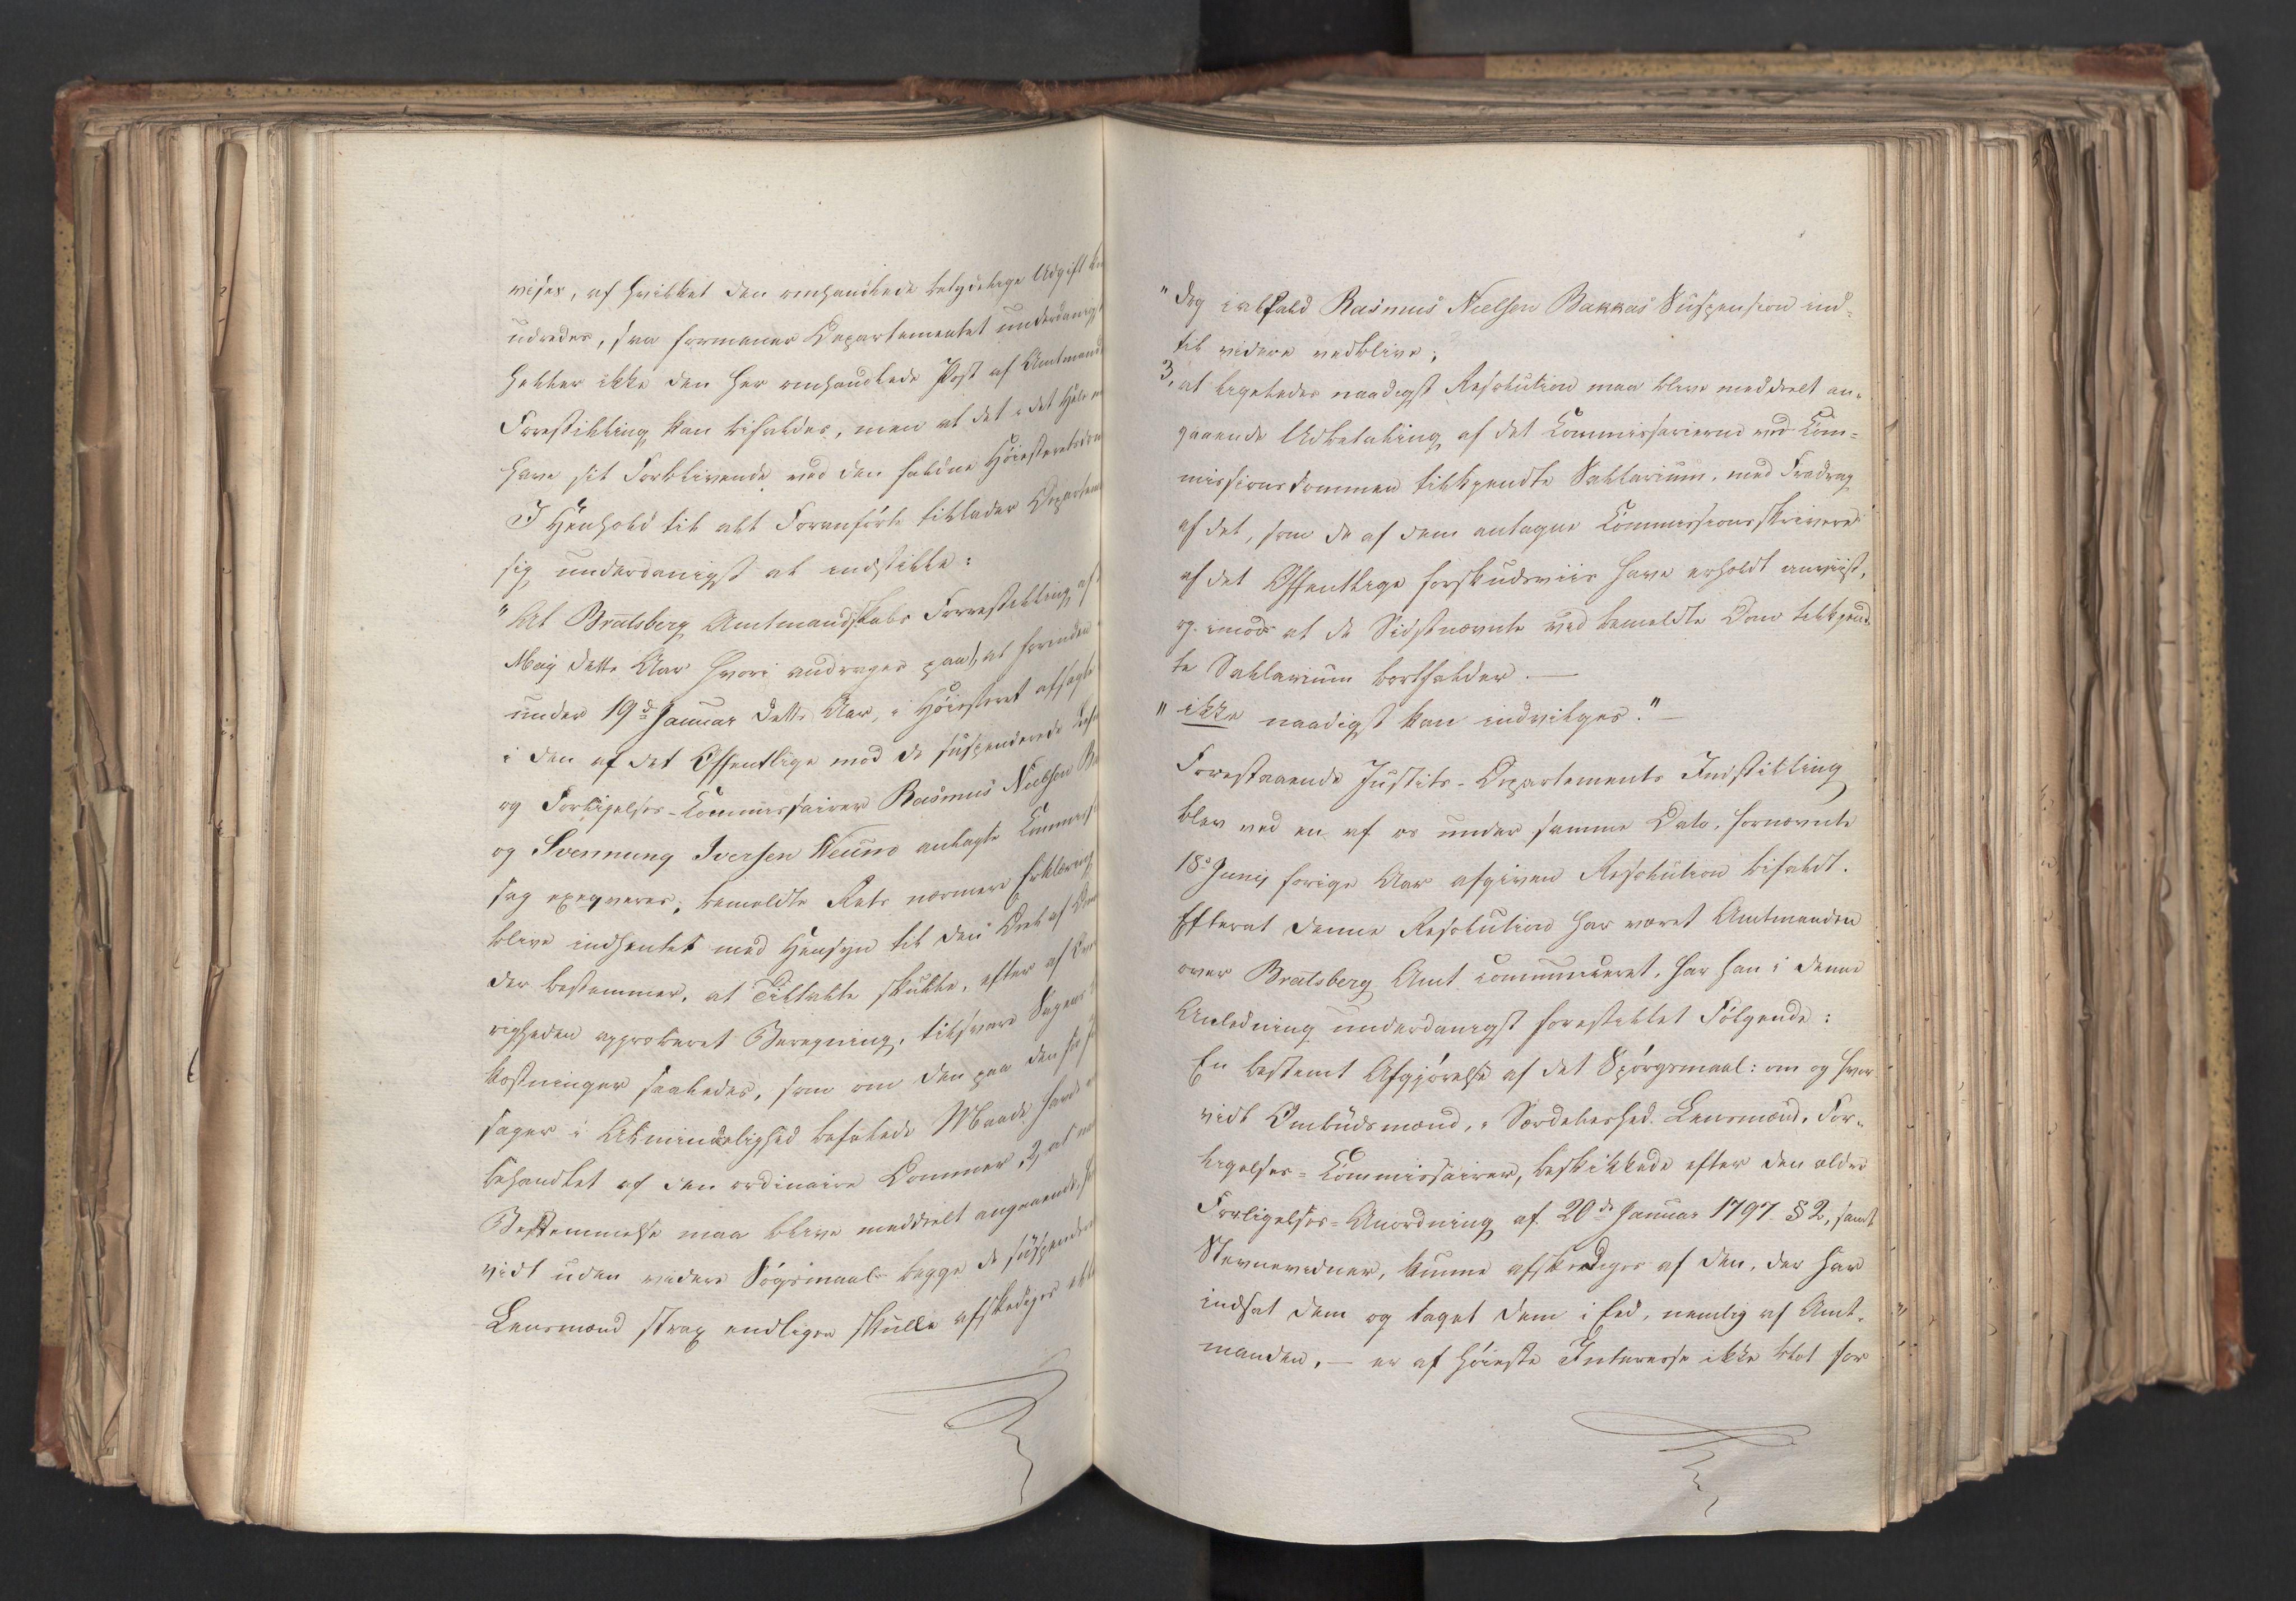 vises, af hvilket den omhandlede betydelige Udgift
udredes, saa formener Departementet underdanigst
heller ikke den her omhandlede Post af Amtmand
Forestilling kan bifaldes, men at det i det Hele
have sit Forblivende ved den faldne Høiesteretsdom
I Henhold til alt Foranførte tillader Departem
sig underdanigst at indstille:
"At Bratsberg Amtmandskabs Forrestilling af
Maij dette Aar hvori andrages paa 1, at forinden
under 19de Januar dette Aar, i Høiesteret afsagte
i den af det Offentlige mod de suspenderede
og Forligelses-Commissairer Rasmus Nielsen
og Svennung Iversen anlagte Commiss
sag exeqveres, bemeldte Rets nærmere Erklæring
blive indhentet med Hensyn til den Deel af
der bestemmer, at Tiltalte skulle, efter af
righeden approberet Beregning, tilsvare Sagens
kostninger saaledes, som om den paa den for
sager i Almindelighed befalede Maade havde
behandlet af den ordinaire Dommer, 2, at
Bestemmelse maa blive meddeelt angaaende,
vidt uden videre Søgsmaal begge de suspendere
Lensmænd strax endligen skulle afskediges
"dog i alfald Rasmus Nielsen Bakkas Suspension ind-
til videre vedblive;
3, at ligeledes naadigst Resolution maa blive meddeelt an-
gaaende Udbetaling af det Commissarierne ved Com-
missionsdommen tilkjendte Sallarium, med Fradrag
af det, som de af dem antagne Commissionsskrivere
af det Offentlige forskudsviis have erholdt anviist,
og imod at de Sidstnævnte ved bemeldte Dom tilkjend-
te Sallarium bortfalder. —
" ikke naadigst kan indvilges." —
Forestaaende Justits-Departements Indstilling
blev ved en af os under samme Dato, fornævnte
18de Junij forige Aar afgiven Resolution bifaldt.
Efterat denne Resolution har været Amtmanden
over Bratsberg Amt communiceret, har han i denne
Anledning underdanigst forestillet Følgende:
En bestemt Afgjørelse af det Spørgsmaal: om og hvor
vidt Ombudsmænd, i Særdeleshed Lensmænd, For-
ligelses-Commissairer, beskikkede efter den ældre
Forligelses-Anordning af 20de Januar 1797 § 2, samt
Stevnevidner, kunne afskediges af den, der har
indsat dem og taget dem i Eed, nemlig af Amt-
manden, — er af høieste Interesse ikke blot for